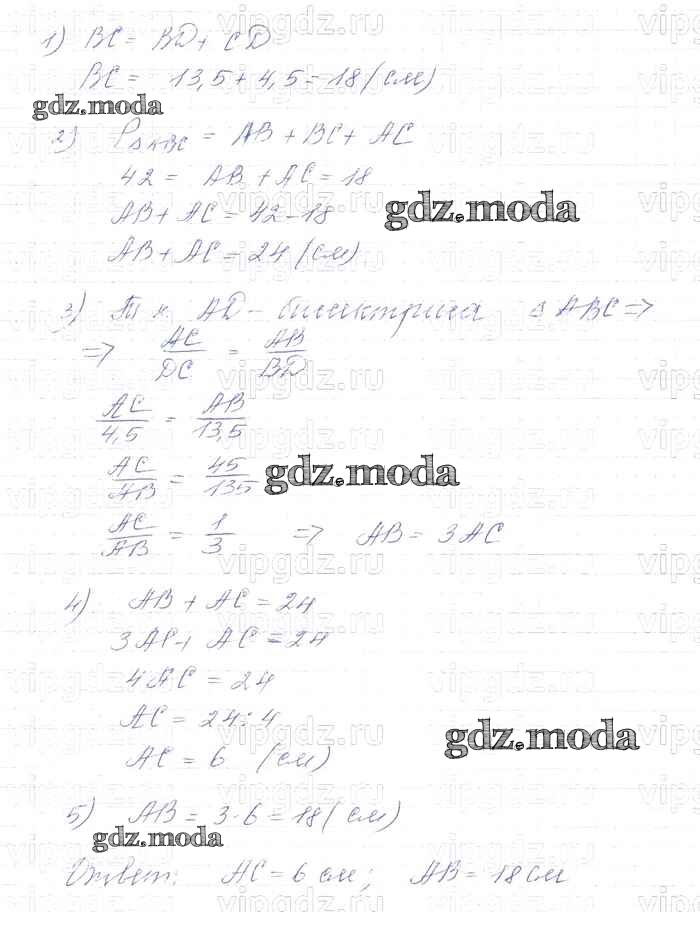 1) BC = BD + CD
BC = 13,5 + 4,5 = 18 (см)
gdz.moda
2) P△ABC = AB + BC + AC
42 = AB + AC = 18
gdz.moda
AB + AC = 42 - 18
AB + AC = 24 (см)
3) Т.к. AD - биссектриса △ ABC =>
=> AC/DC = AB/BD
AC/4,5 = AB/13,5
AC/AB = 45/135
gdz.moda
AC/AB = 1/3 => AB = 3AC
4) AB + AC = 24
3AC + AC = 24
4AC = 24
AC = 24:4
gdz.moda
AC = 6 (см)
5) AB = 3·6 = 18 (см)
gdz.moda
Ответ: AC = 6 см; AB = 18 см
vipgdz.ru